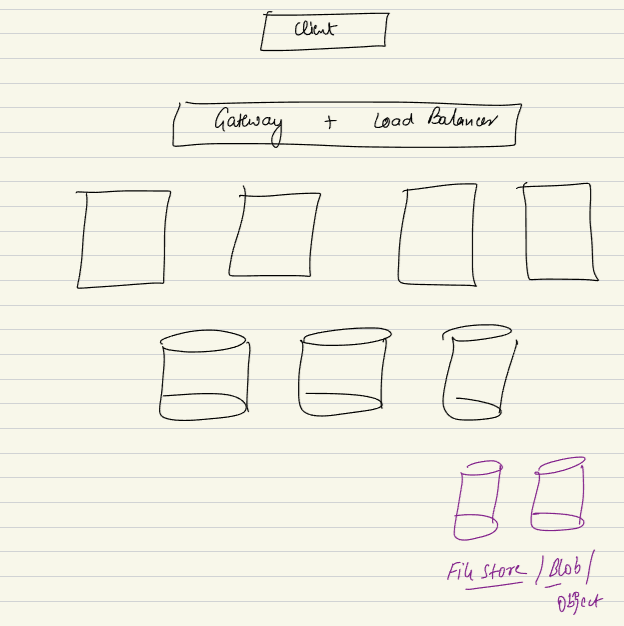 Client
Gateway + Load Balancer
File Store / Blob /
Object